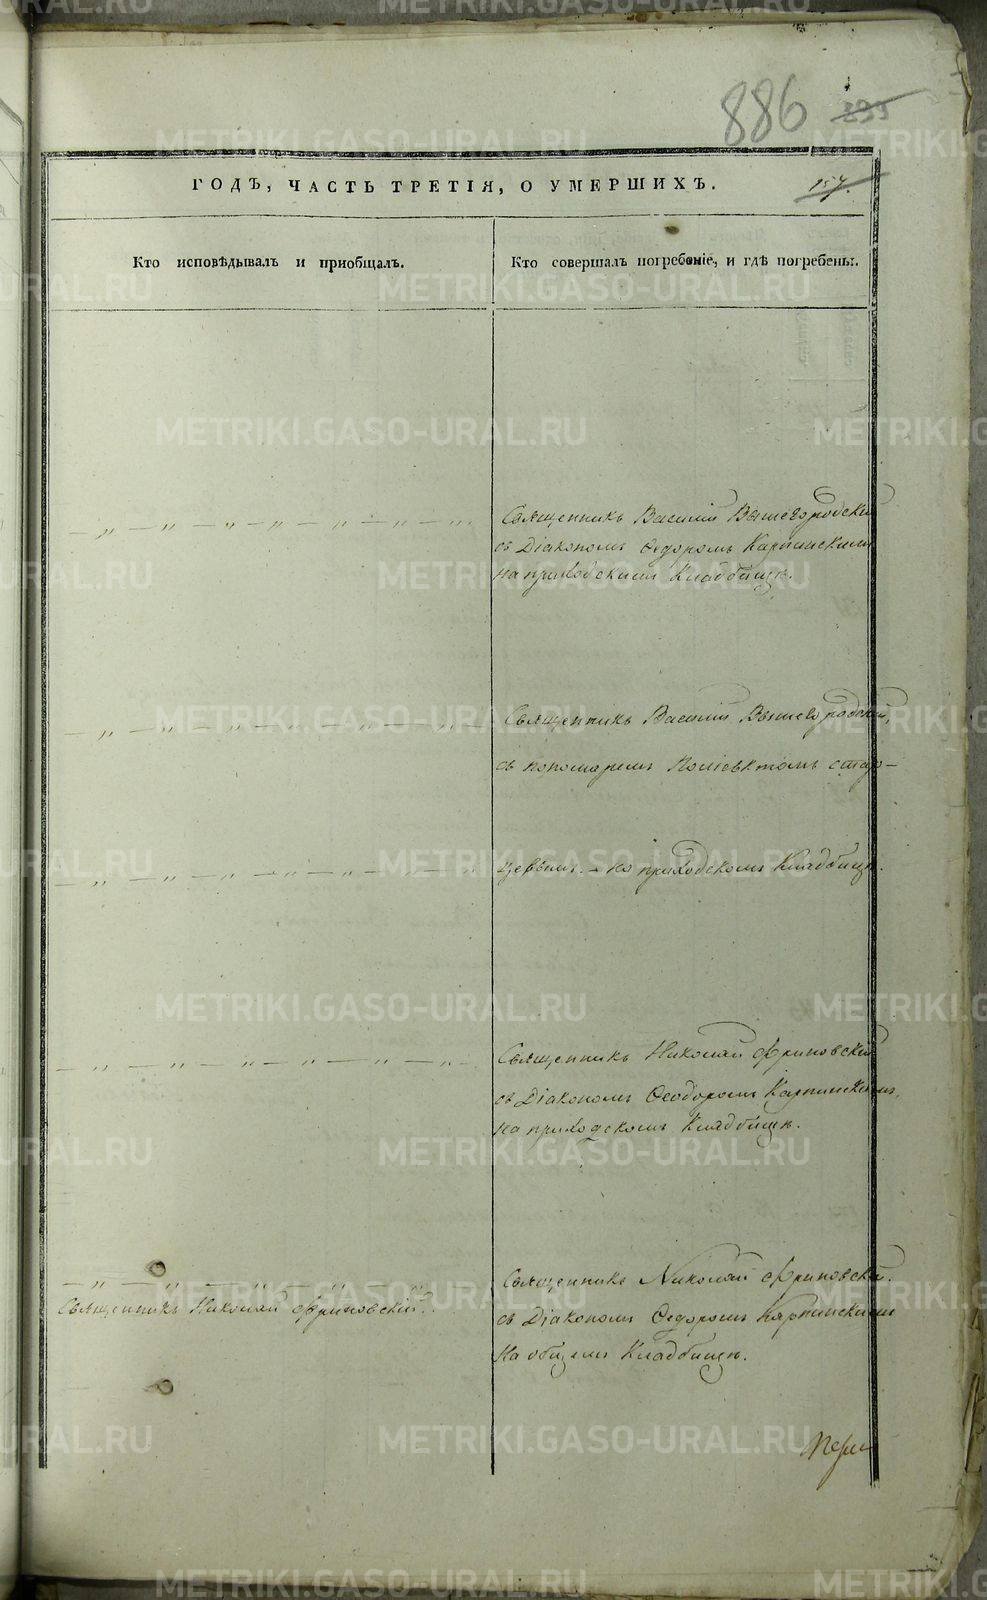 886 395
ГОДЪ, ЧАСТЬ ТРЕТІЯ, О УМЕРШИХЪ. 157.
Кто исповѣдывалъ и приобщалъ.
Кто совершалъ погребеніе, и гдѣ погребены.
— „ — „ — „ — „ — „ — „ — „
Священникъ Василій Вышегородскій
съ Діакономъ Ѳедоромъ Карпинскимъ
на приходскомъ Кладбищѣ.
— „ — „ — „ — „ — „ — „ — „
Священникъ Василій Вышегородскій,
съ пономаремъ Поліевктомъ стар-
— „ — „ — „ — „ — „ — „ — „
цевымъ. — на приходскомъ Кладбищѣ.
— „ — „ — „ — „ — „ — „ — „
Священникъ Николай Фриновскій
съ Діакономъ Ѳеодоромъ Карпинскимъ,
на приходскомъ Кладбищѣ.
— „ — „ — „ — „ — „
Священникъ Николай Фриновскій.
Священникъ Николай Фриновскій.
съ Діакономъ Ѳедоромъ Карпинскимъ
на общемъ Кладбищѣ.
METRIKI.GASO-URAL.RU